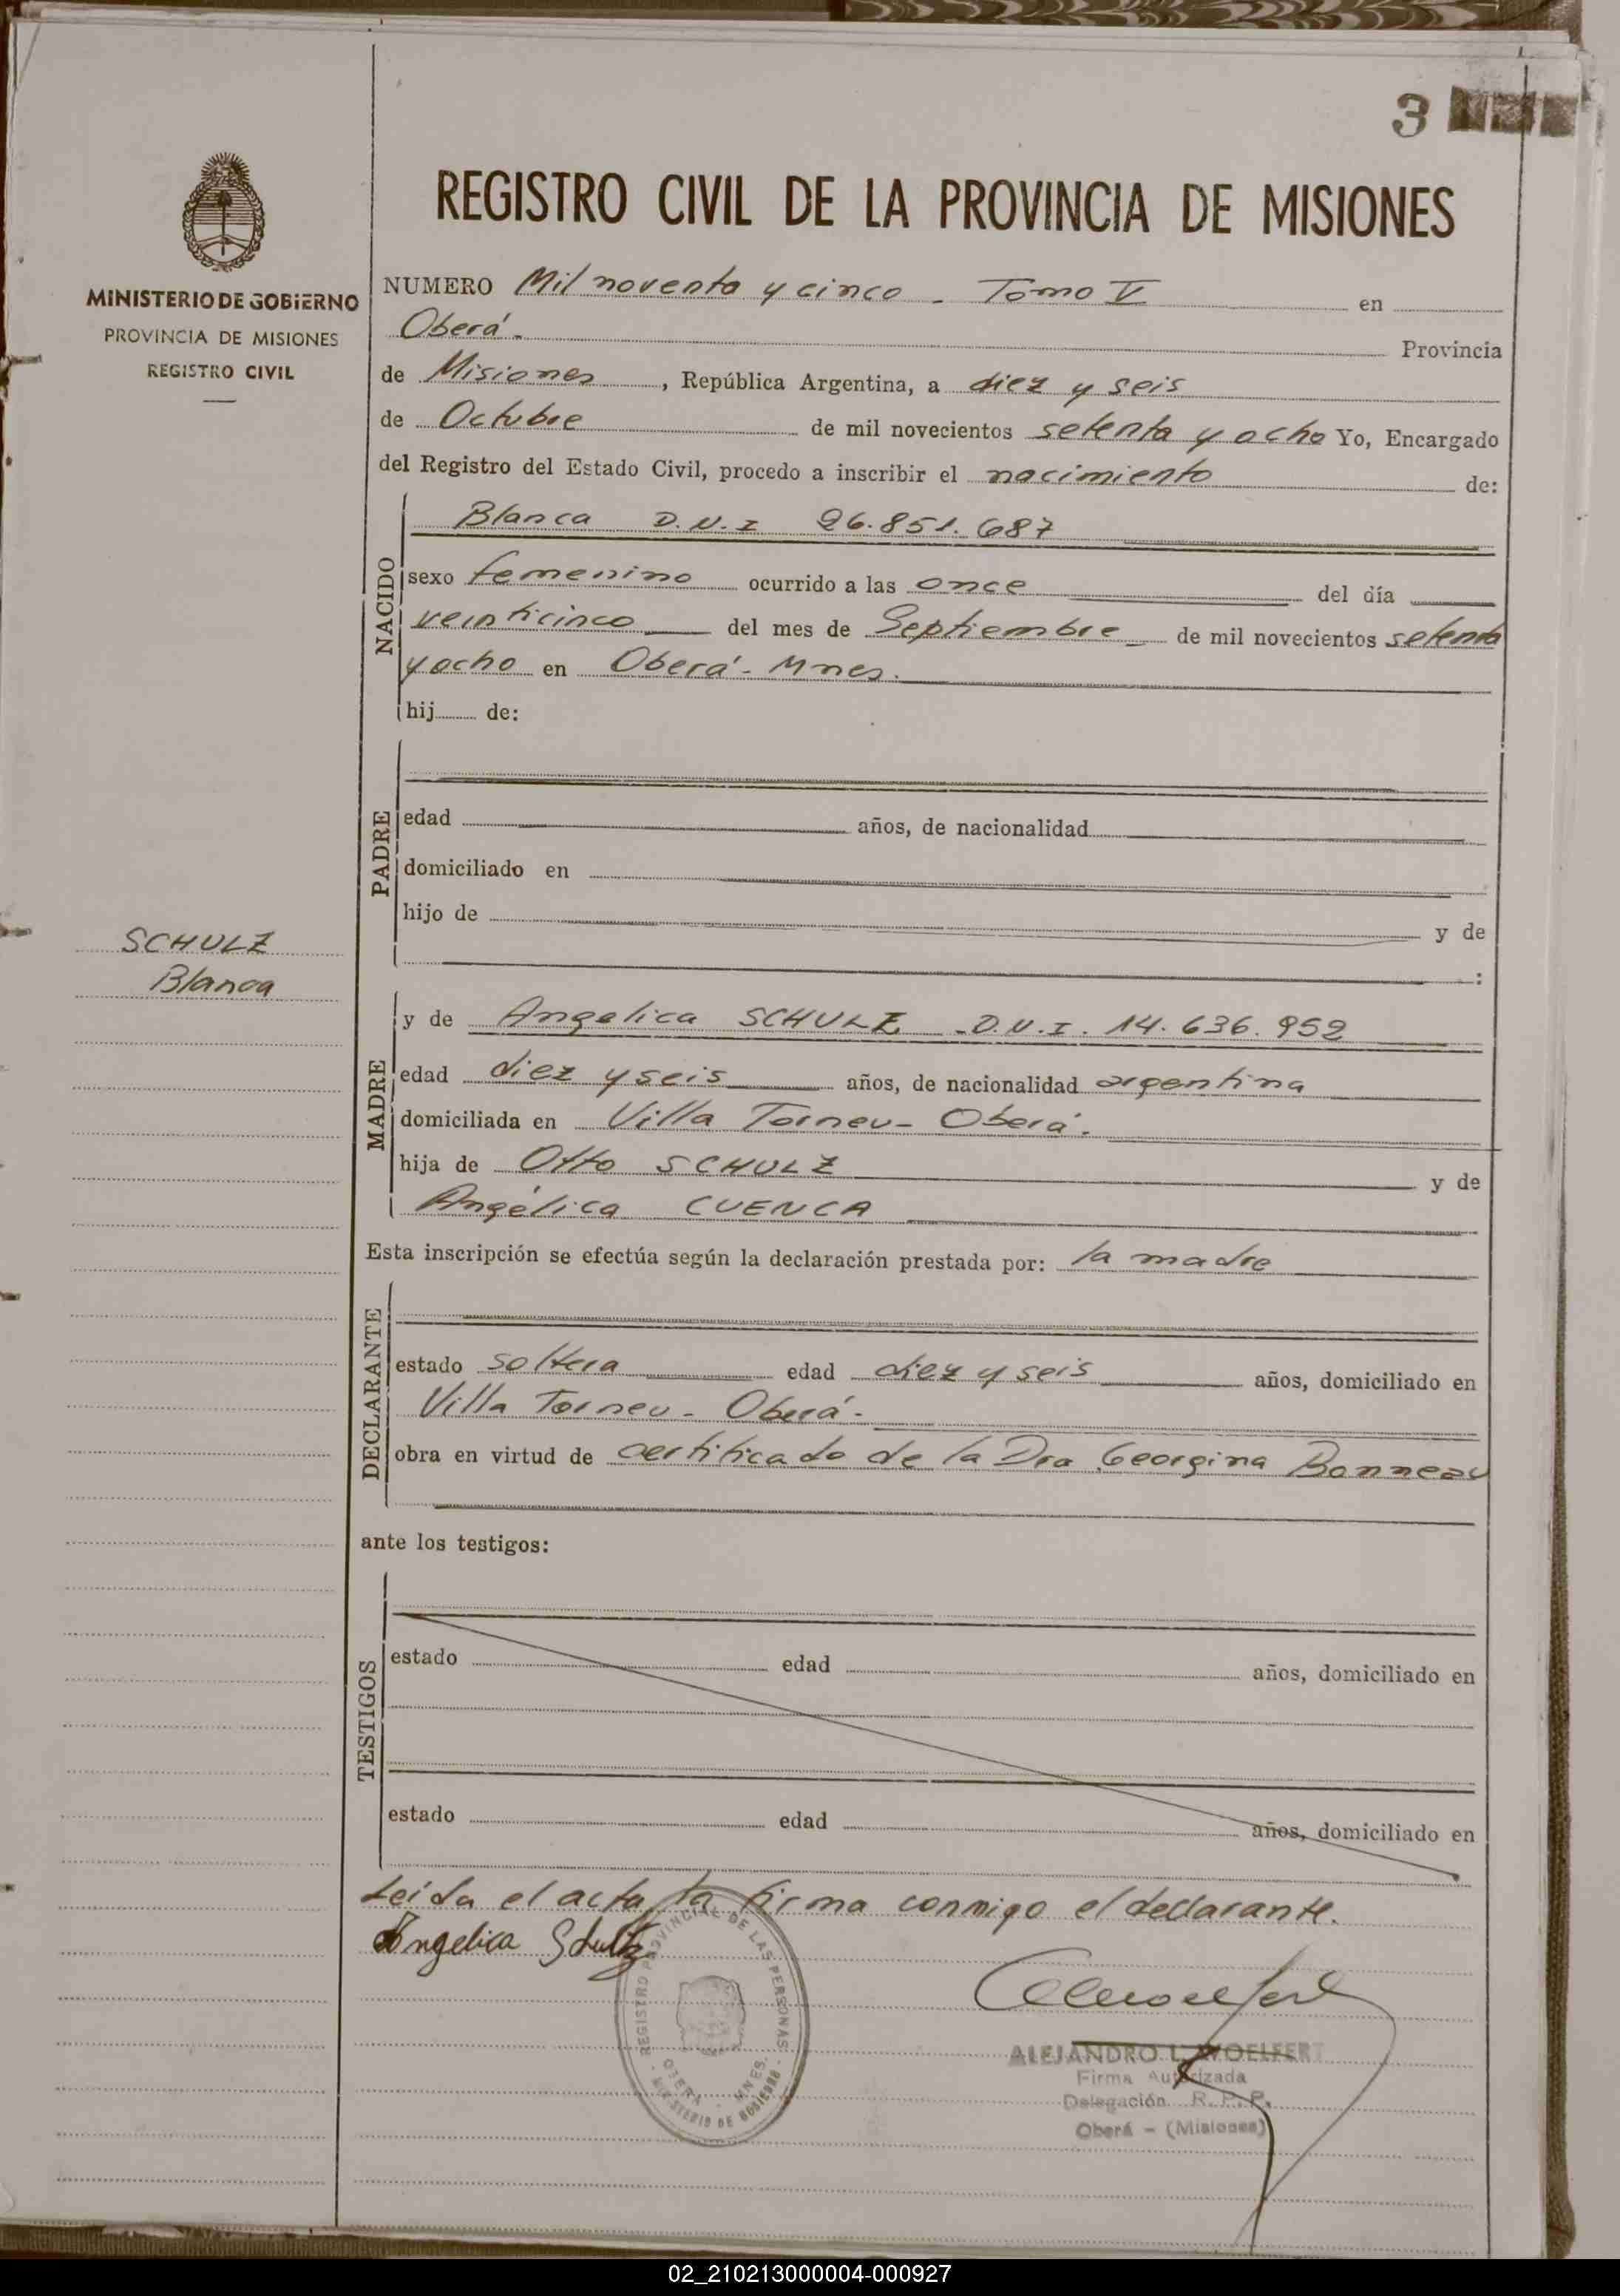 3
REGISTRO CIVIL DE LA PROVINCIA DE MISIONES
MINISTERIO DE GOBIERNO
PROVINCIA DE MISIONES
REGISTRO CIVIL
NUMERO Mil noventa y cinco - Tomo V en
Oberá - Provincia
de Misiones, República Argentina, a diez y seis
de Octubre de mil novecientos setenta y ocho Yo, Encargado
del Registro del Estado Civil, procedo a inscribir el nacimiento de:
NACIDO
Blanca D.N.I 26.851.687
sexo femenino ocurrido a las once del día
veinticinco del mes de Septiembre de mil novecientos setenta
y ocho en Oberá - Mnes.
hij de:
PADRE
edad años, de nacionalidad
domiciliado en
hijo de y de
:
SCHULZ
Blanca
MADRE
y de Angelica SCHULZ - D.N.I. 14.636.952
edad diez y seis años, de nacionalidad argentina
domiciliada en Villa Torneu - Oberá.
hija de Otto SCHULZ y de
Angélica CUENCA
Esta inscripción se efectúa según la declaración prestada por: la madre
DECLARANTE
estado soltera edad diez y seis años, domiciliado en
Villa Torneu - Oberá -
obra en virtud de certificado de la Dra Georgina Bonneau
ante los testigos:
TESTIGOS
estado edad años, domiciliado en
estado edad años, domiciliado en
Leída el acta, la firma conmigo el declarante.
Angelica Schultz
REGISTRO PROVINCIAL DE LAS PERSONAS
OBERA - MNES.
MINISTERIO DE GOBIERNO
ALEJANDRO L. WOELFERT
Firma Autorizada
Delegación R.P.P.
Oberá - (Misiones)
02_210213000004-000927